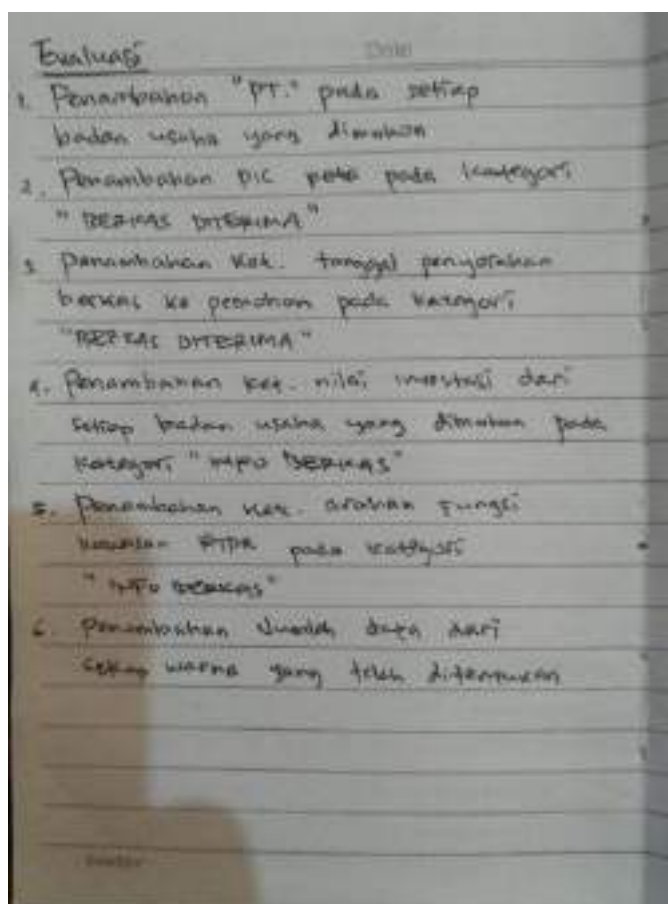 Evaluasi
Date
1. Penambahan "PT." pada setiap
badan usaha yang dimohon
2. Penambahan PIC peta pada kategori
"BERKAS DITERIMA"
3. Penambahan Ket. tanggal penyerahan
berkas ke pemohon pada kategori
"BERKAS DITERIMA"
4. Penambahan ket. nilai investasi dari
setiap badan usaha yang dimohon pada
kategori "INFO BERKAS"
5. Penambahan ket. arahan fungsi
kawasan pada kategori
"INFO BERKAS"
6. Penambahan Jumlah data dari
setiap warna yang telah ditentukan